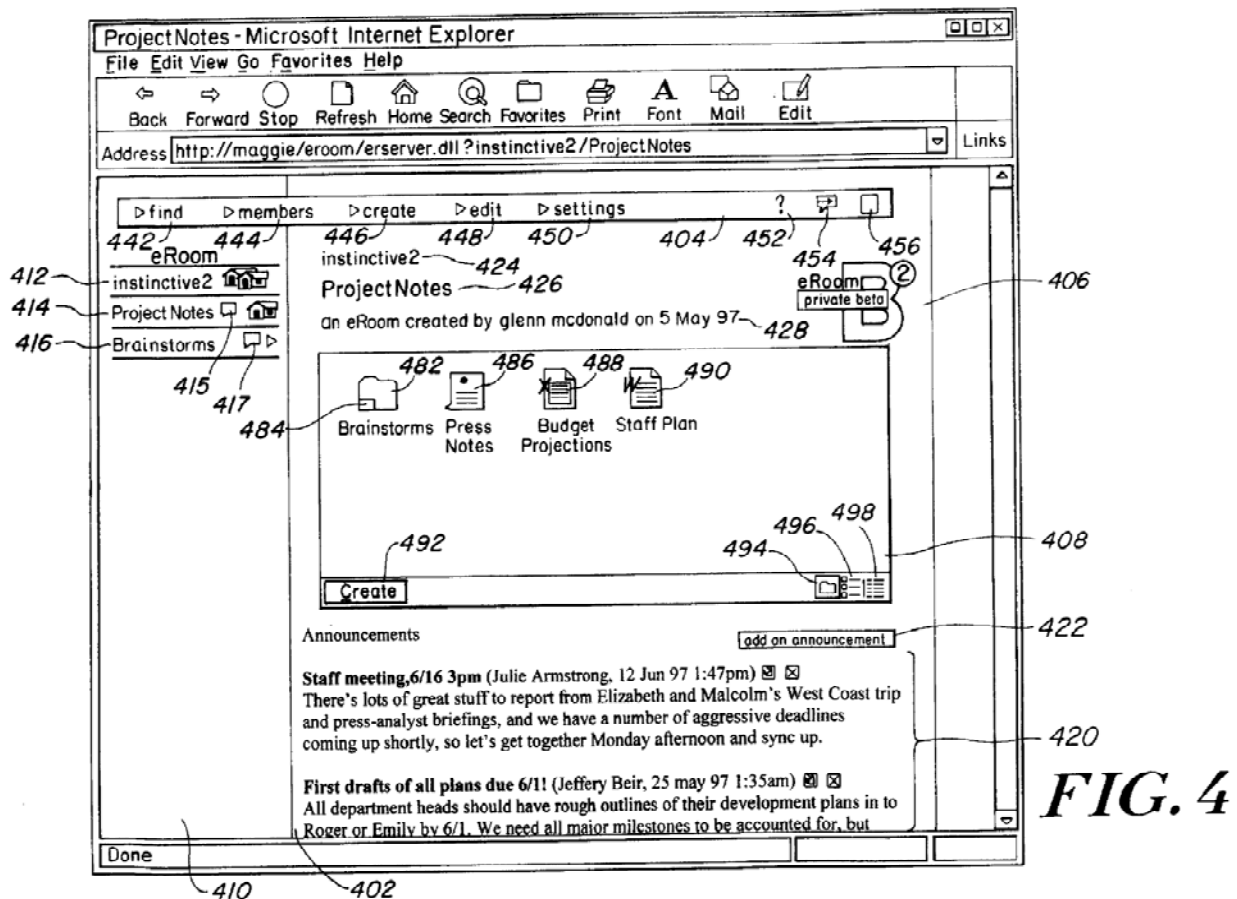 ProjectNotes - Microsoft Internet Explorer
File Edit View Go Favorites Help
Back Forward Stop Refresh Home Search Favorites Print Font Mail Edit
Address http://maggie/eroom/erserver.dll?instinctive2/ProjectNotes Links
find members create edit settings ?
442 444 446 448 450 404 452 454 456
eRoom
412 instinctive2
instinctive2 424
414 Project Notes
ProjectNotes 426
eRoom 2
private beta
B
406
416 Brainstorms
an eRoom created by glenn mcdonald on 5 May 97 428
415 417
482 486 488 490
484
X W
Brainstorms Press Notes Budget Projections Staff Plan
492 494 496 498 408
Create
Announcements add an announcement 422
Staff meeting,6/16 3pm (Julie Armstrong, 12 Jun 97 1:47pm)
There's lots of great stuff to report from Elizabeth and Malcolm's West Coast trip
and press-analyst briefings, and we have a number of aggressive deadlines
coming up shortly, so let's get together Monday afternoon and sync up.
420
First drafts of all plans due 6/1! (Jeffery Beir, 25 may 97 1:35am)
All department heads should have rough outlines of their development plans in to
Roger or Emily by 6/1. We need all major milestones to be accounted for, but
Done
410 402
FIG. 4